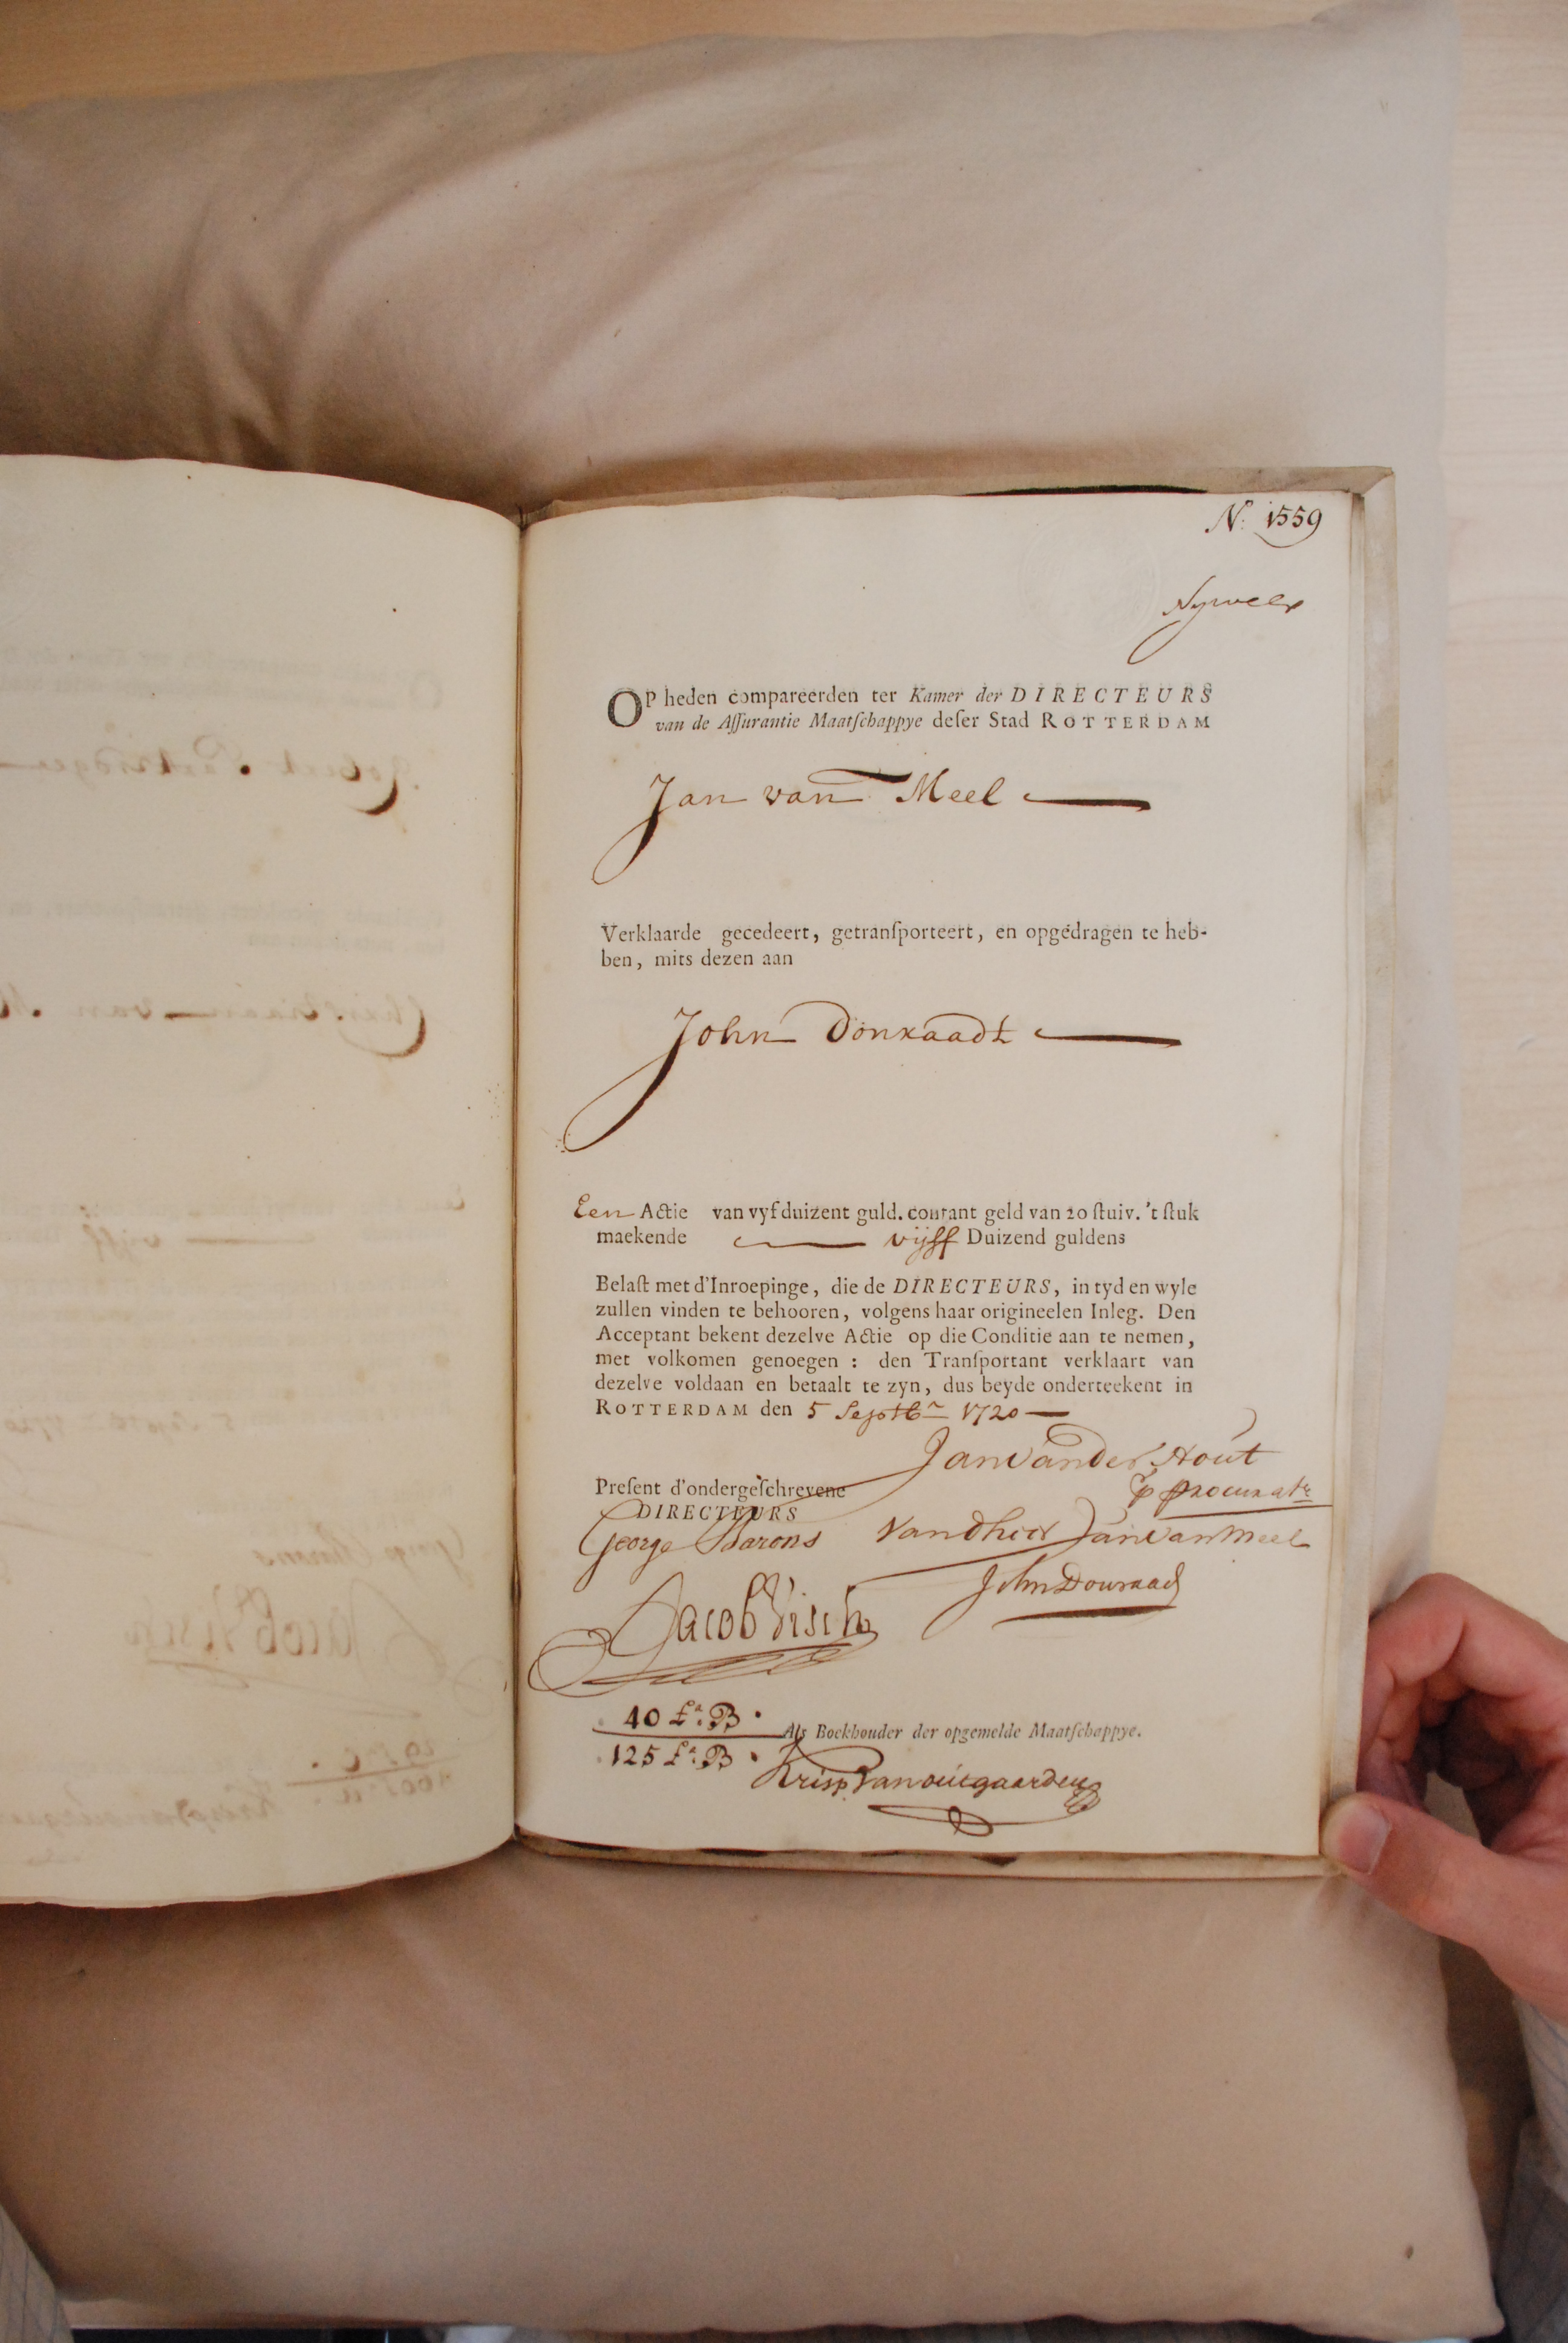 N: 1559
OP heden compareerden ter Kamer der DIRECTEURS
van de Aſſurantie Maatſchappye deſer Stad ROTTERDAM
Jan van Meel
Verklaarde gecedeert, getranſporteert, en opgedragen te heb-
ben, mits dezen aan
John Donraadt
Een Actie van vyf duizent guld. courant geld van 20 ſtuiv. 't ſtuk
maekende vijff Duizend guldens
Belaſt met d'Inroepinge, die de DIRECTEURS, in tyd en wyle
zullen vinden te behooren, volgens haar origineelen Inleg. Den
Acceptant bekent dezelve Actie op die Conditie aan te nemen,
met volkomen genoegen : den Tranſportant verklaart van
dezelve voldaan en betaalt te zyn, dus beyde onderteekent in
ROTTERDAM den 5 Septbr 1720
Jan van der Hout
Preſent d'ondergeſchrevene
DIRECTEURS
George Barons Jan van Meel
Jacob Visch
40 Lr. B
Als Boekhouder der opgemelde Maatſchappye.
125 Lr. B